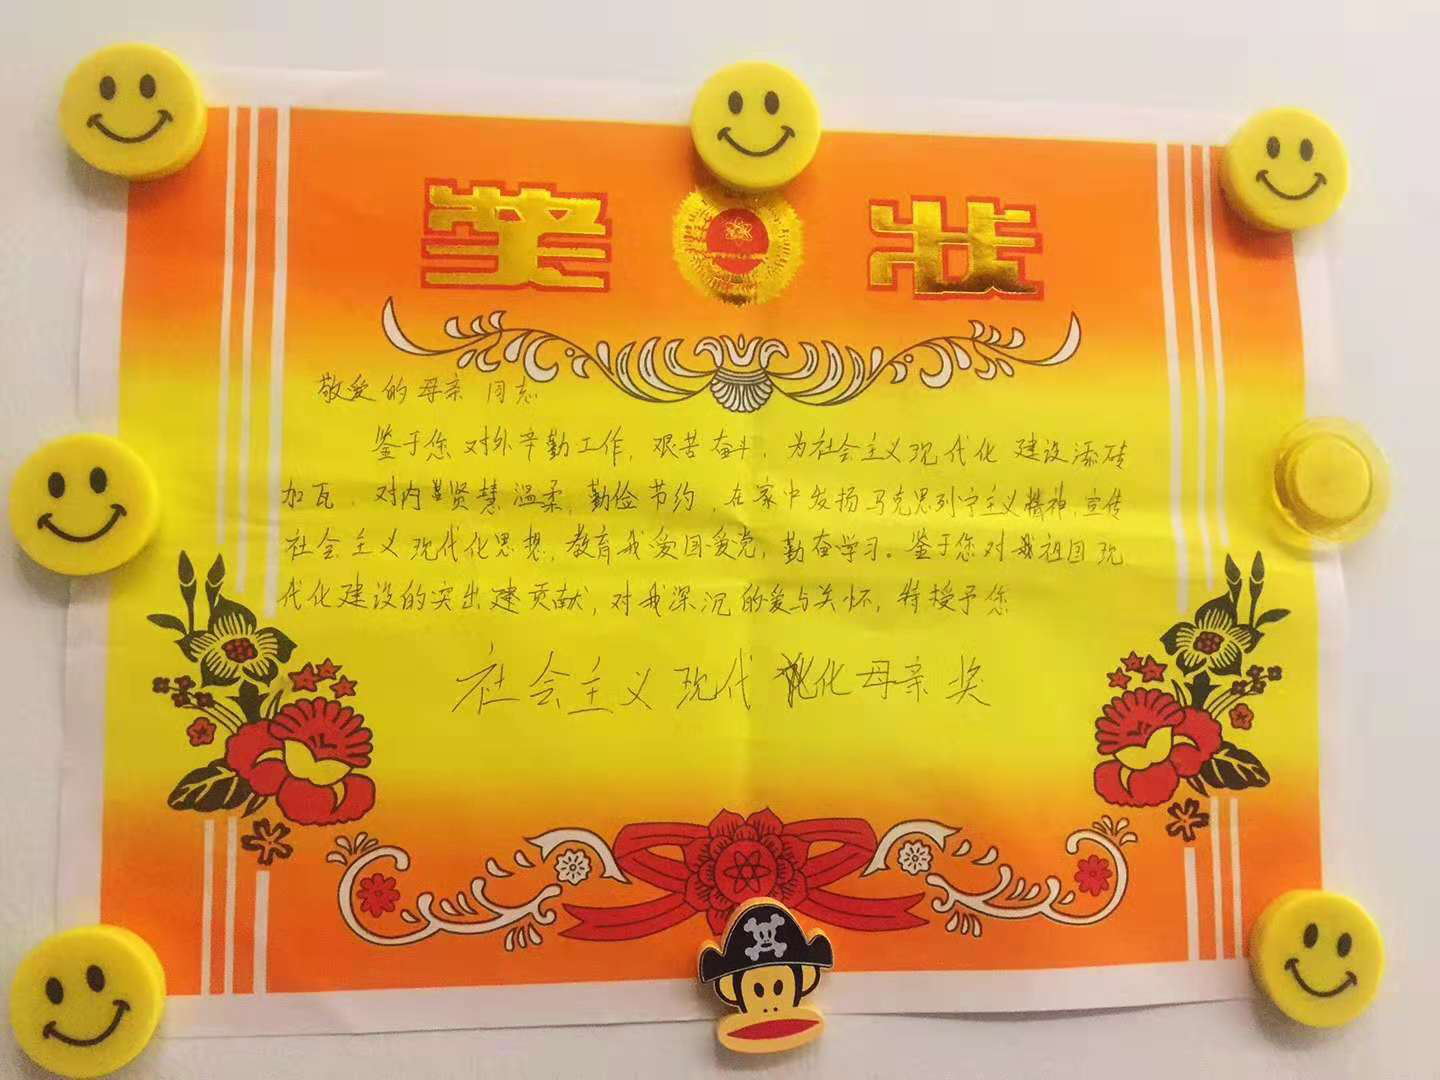 奖 状
敬爱的母亲 同志
鉴于您对外辛勤工作,艰苦奋斗,为社会主义现代化建设添砖
加瓦,对内贤慧温柔,勤俭节约,在家中发扬马克思列宁主义精神,宣传
社会主义现代化思想,教育我爱国爱党,勤奋学习。鉴于您对我祖国现
代化建设的突出建贡献,对我深沉的爱与关怀,特授予您
社会主义现代化母亲奖